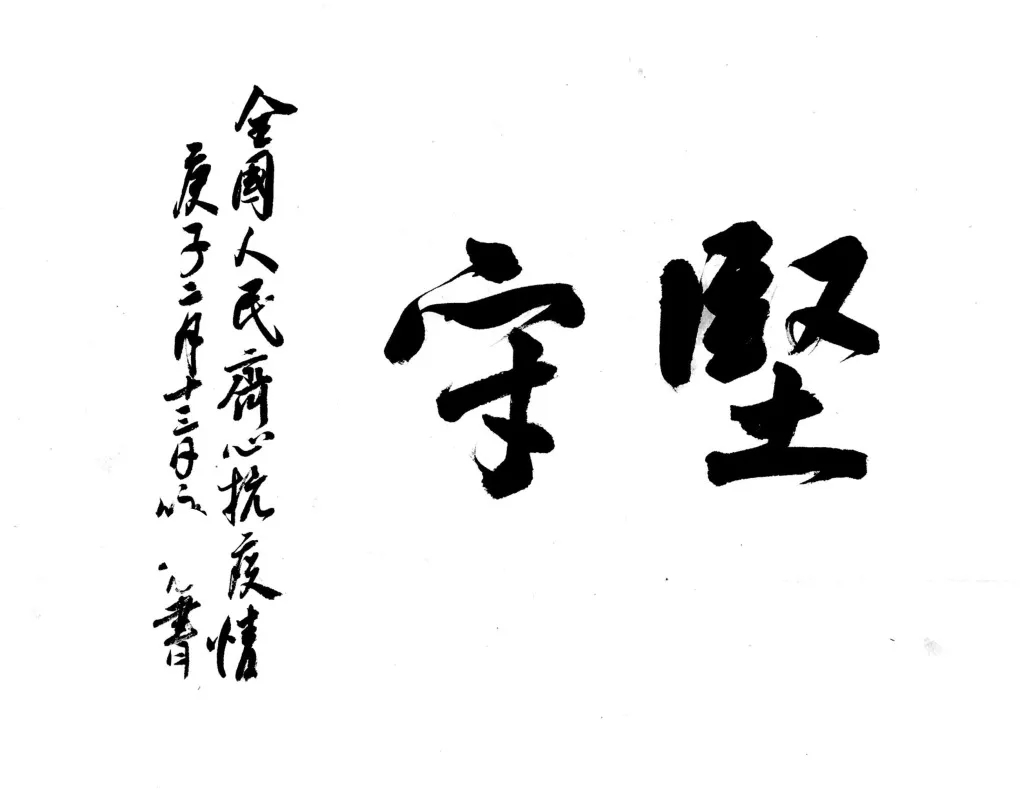 堅守
全國人民齊心抗疫情
庚子二月十三日
書